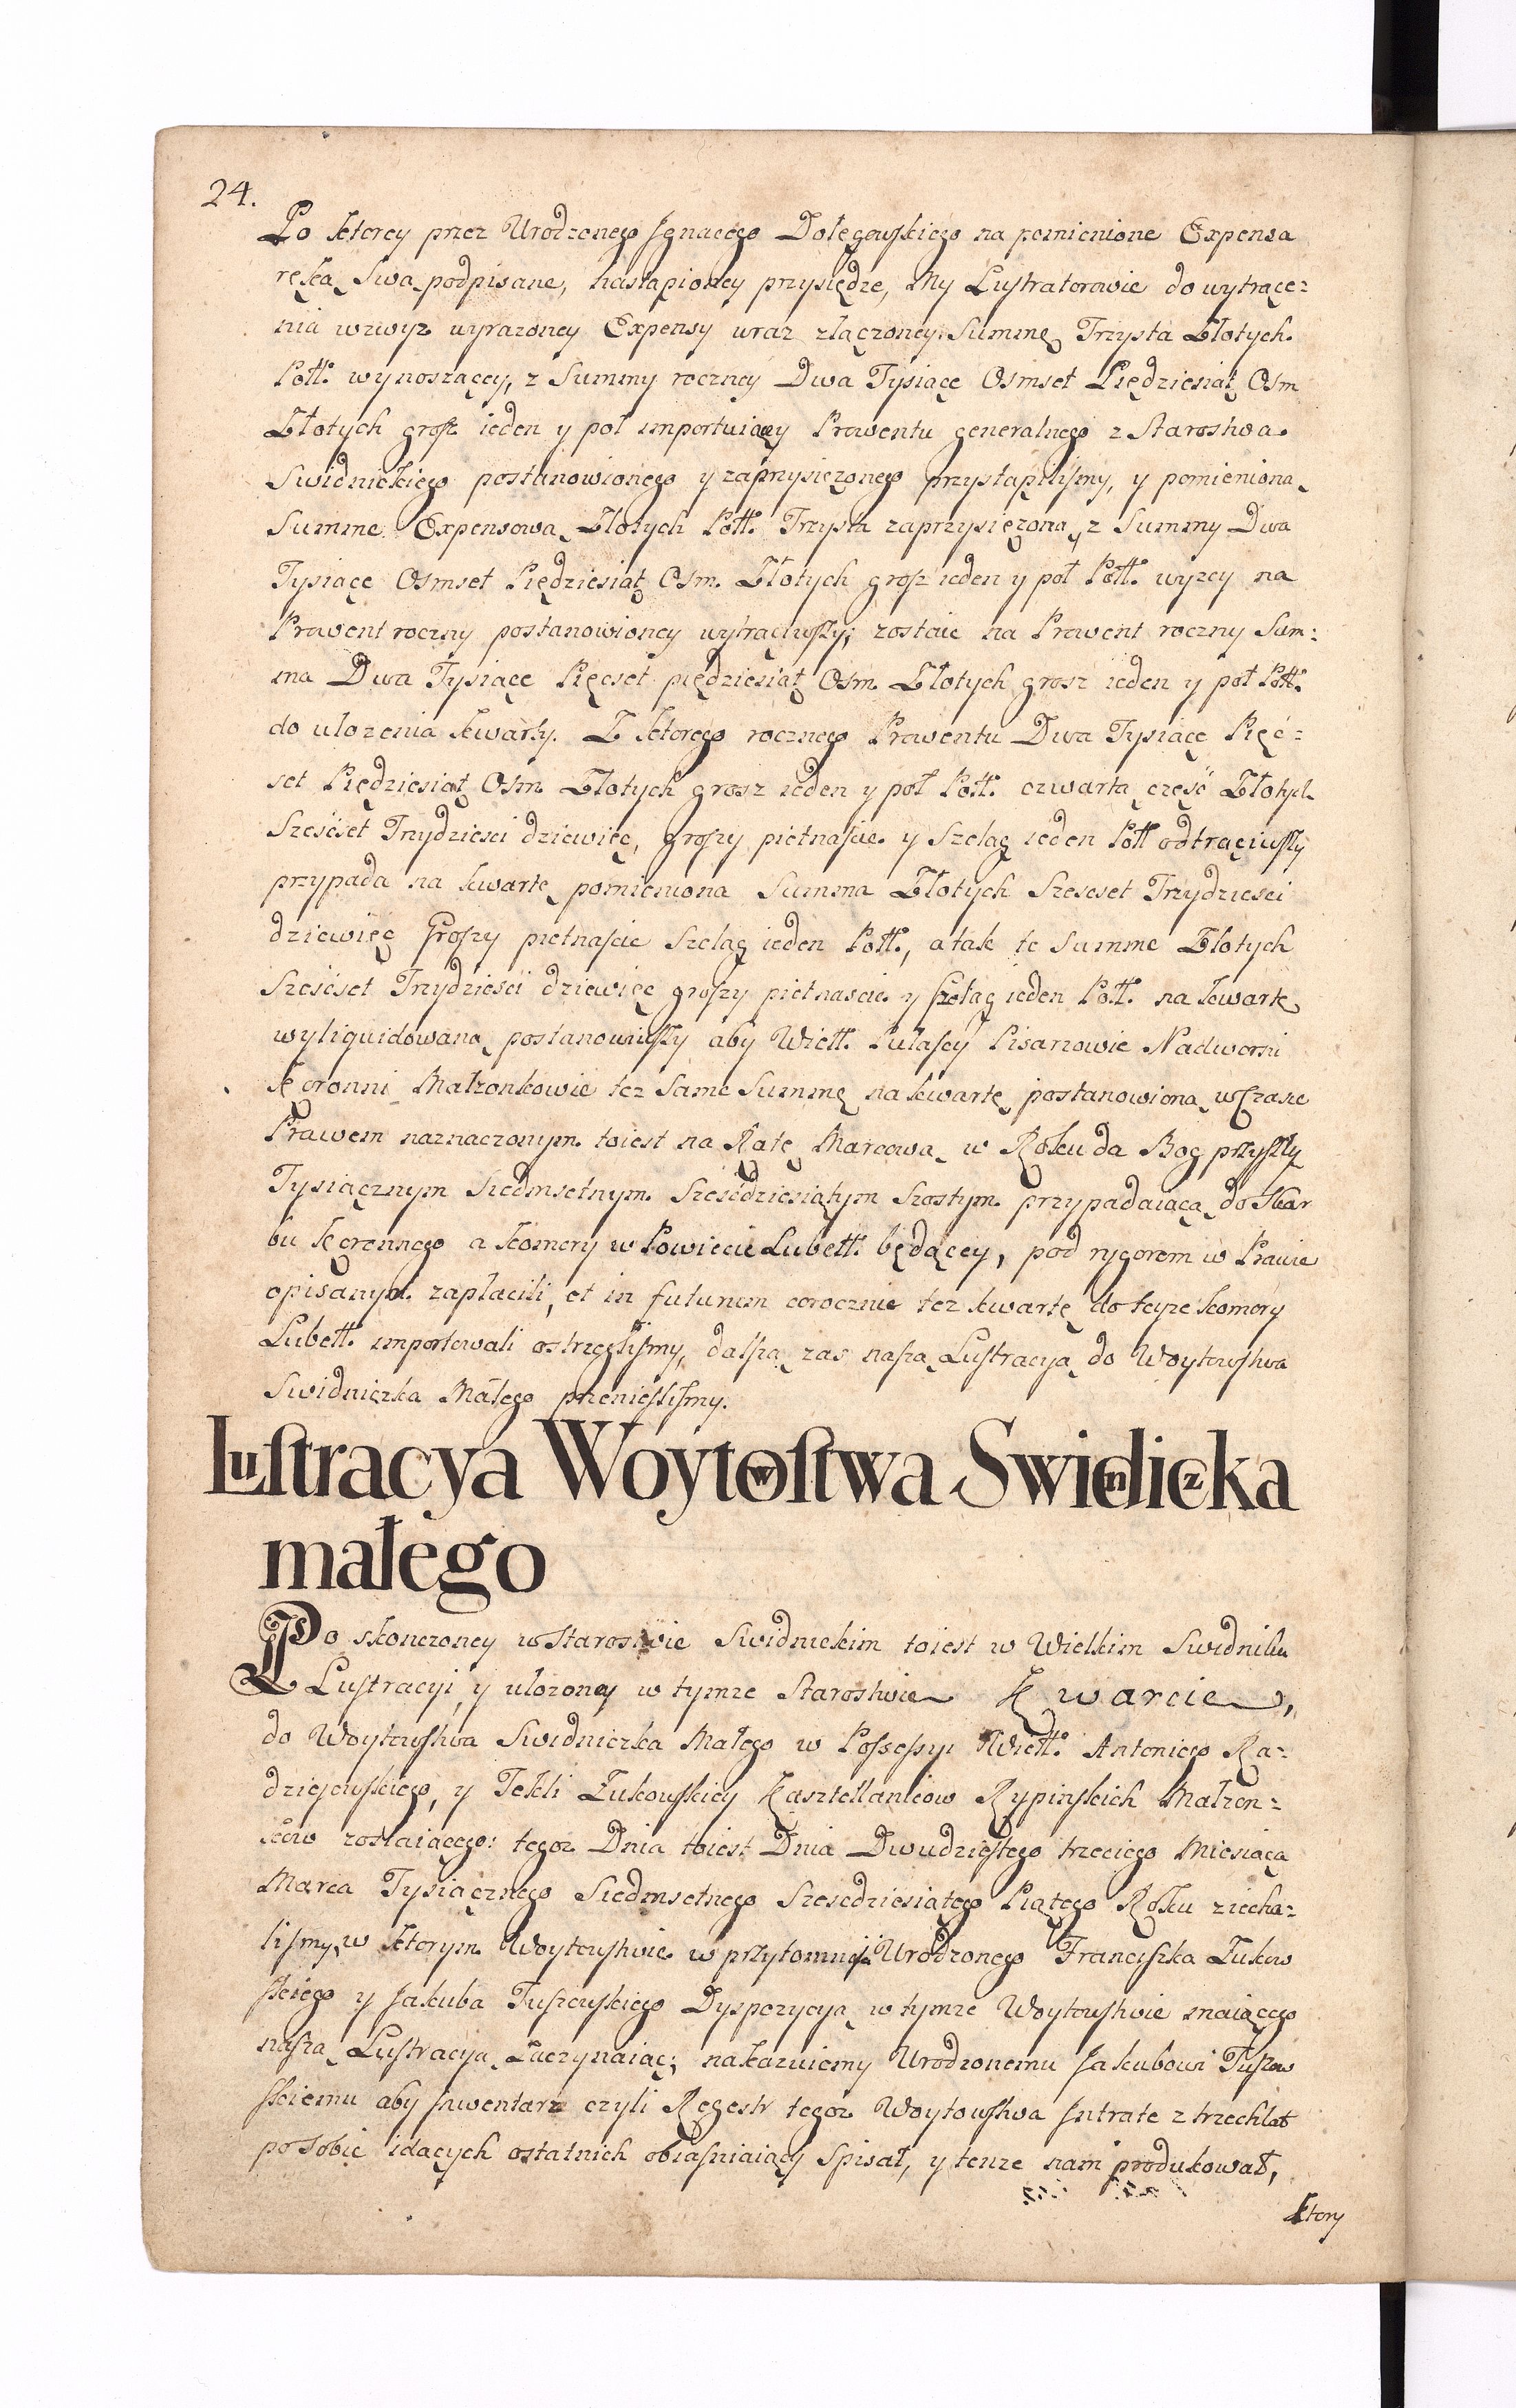 24.
Po ktorey przez Urodzonego Jgnacego Dołęgowskiego na pomienione Expensa
ręką swą podpisane, nastąpioney przysiędze, My Lustratorowie do wytrące=
nia wzwyz wyrazoney Expensy wraz złączoney Summę Trzysta Złotych
Poll: wynoszącey, z Summy roczney Dwa Tysiące Osmset Piędziesiąt Osm
Złotych grosz ieden y poł importuiący Prowentu generalnego z Starostwa
Swidnickiego postanowionego y zaprzysiężonego przystąpilismy, y pomienioną
Summe Expensową Złotych Poll: Trzysta zaprzysięzoną, z Summy Dwa
Tysiące Osmset Piędziesiąt Osm Złotych grosz ieden y poł Poll: wyzey na
Prowent roczny postanowioney wytrąciwszy, zostaie na Prowent roczny Sum=
ma Dwa Tysiące Pięcset piędziesiąt Osm Złotych grosz ieden y poł Poll:
do ulozenia kwarty. Z ktorego rocznego Prowentu Dwa Tysiące Pięć=
set Piędziesiąt Osm Złotych grosz ieden y poł Poll: czwartą część Złotych
Sześćset Trzydziesci dziewięc, groszy pietnascie y Szeląg ieden Poll odtrąciwszy
przypada na kwartę pomieniona Summa Złotych Szescset Trzydziesci
dziewięc Groszy pietnascie Szeląg ieden Poll:, a tak te Summe Złotych
Sześćset Trzydzieści dziewięc groszy pietnascie y szeląg ieden Poll: na kwartę
wyliquidowaną postanowiwszy aby Wiell: Pułascy Pisarzowie Nadworni
Koronni Małzonkowie tez same Summę na kwartę postanowioną w Czasie
Prawem naznaczonym toiest na Ratę Marcową w Roku da Bog przyszły
Tysiącznym Siedmsetnym Sześćdziesiątym Szostym przypadaiącą do Skar
bu Koronnego a komory w Powiecie Lubell: będącey, pod rygorem w Prawie
opisanym zapłacili, et in futurum corocznie tez kwartę do teyze komory
Lubell: importowali ostrzeglismy, dalszą zas naszą Lustracyą do Woytowstwa
Swidniczka Małego przeniesliśmy.
Lustracya Woytowstwa Swidniczka
małego
Po skonczoney w Starostwie Swidnickim toiest w Wielkim Swidniku
Lustracyi, y ulozoney w tymze Starostwie Kwarcie,
do Woytowstwa Swidniczka Małego w Possessyi Wiell: Antoniego Ra=
dziejowskiego, y Tekli Żukowskiey Kasztellanicow Rypinskich Małzon=
kow zostaiącego: tegoz Dnia toiest Dnia Dwudziestego trzeciego Miesiąca
Marca Tysiącznego Siedmsetnego Szescdziesiątego Piątego Roku ziecha=
lismy, w ktorym Woytowstwie w przytomnosci Urodzonego Franciszka Żukow
skiego y Jakuba Tuszowskiego Dyspozycyą w tymze Woytowstwie maiącego
naszą Lustracyą Zaczynaiąc, nakazuiemy Urodzonemu Jakubowi Tuszow
skiemu aby Jnwentarz czyli Regestr tegoz Woytowstwa Jntratę z trzech lat
po sobie idących ostatnich obiasniaiący spisał, y tenze nam produkował,
ktory